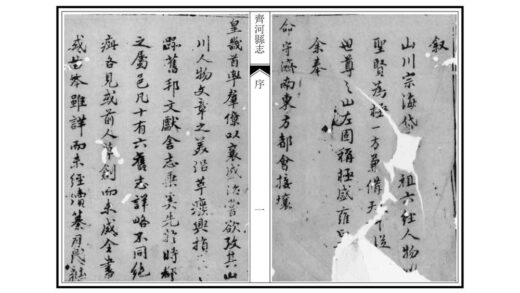 叙
山川宗海岱祖六经人物以
聖賢為極一方弟備天下
世尊之山左固稱極盛雍
余奉
命守濟南東方都會接壤
齊河縣志
序
一
皇畿首率羣僚以襄盛治嘗欲攷其山
川人物文章之美沿革興指
舊邦文獻舍志乘實先於時郡
之屬邑凡十有六舊志詳略不同絕
各見或前人草創而未成全書
或世本雖詳而未經續纂有民社